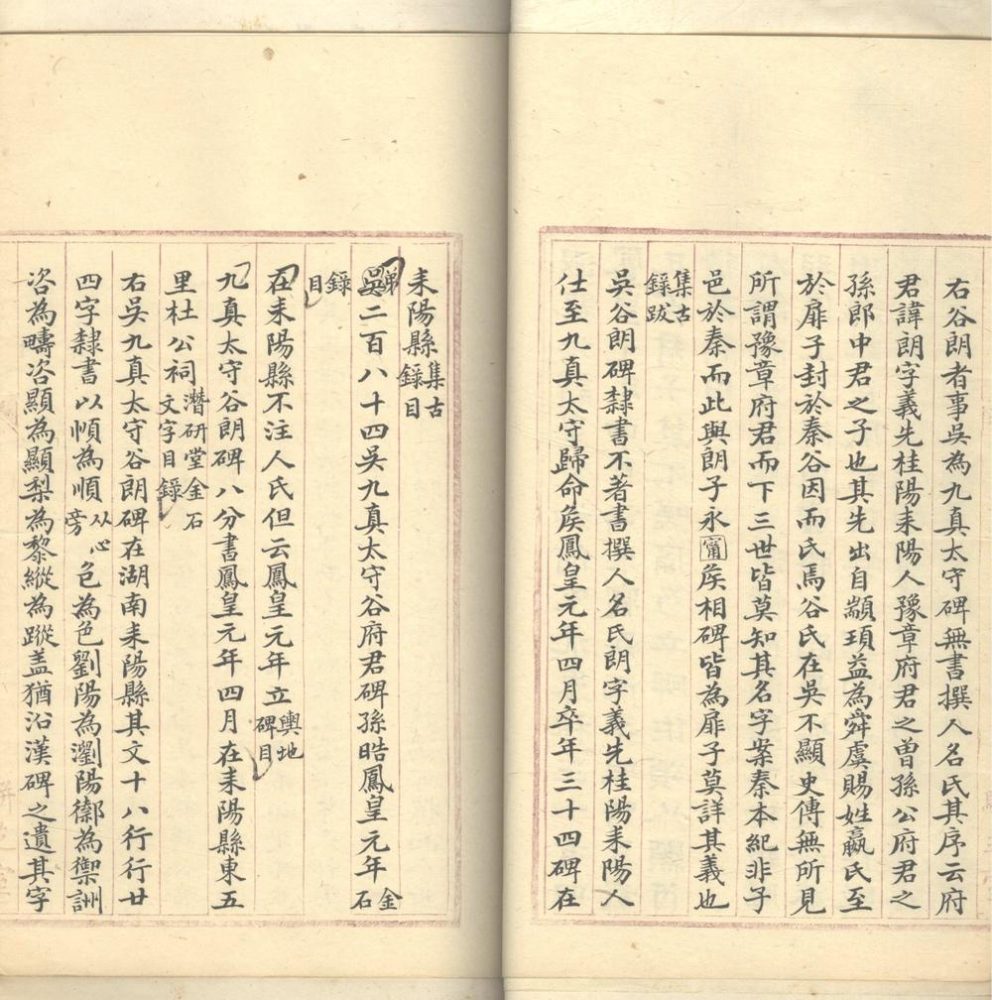 右谷朗者事吳為九真太守碑無書撰人名氏其序云府
君諱朗字義先桂陽耒陽人豫章府君之曾孫公府君之
孫郎中君之子也其先出自顓頊益為舜虞賜姓嬴氏至
於扉子封於秦谷因而氏焉谷氏在吳不顯史傳無所見
所謂豫章府君而下三世皆莫知其名字案秦本紀非子
邑於秦而此與朗子永甯矦相碑皆為扉子莫詳其義也
集古
錄跋
吳谷朗碑隸書不著書撰人名氏朗字義先桂陽耒陽人
仕至九真太守歸命矦鳳皇元年四月卒年三十四碑在
耒陽縣集古
錄目
弟吳二百八十四吳九真太守谷府君碑孫皓鳳皇元年金
石
錄
目
在耒陽縣不注人氏但云鳳皇元年立輿地
碑目
九真太守谷朗碑八分書鳳皇元年四月在耒陽縣東五
里杜公祠潛研堂金石
文字目錄
右吳九真太守谷朗碑在湖南耒陽縣其文十八行行廿
四字隸書以愼為順从心
旁色為色劉陽為瀏陽禦為禦詶
咨為疇咨顯為顯梨為黎縱為蹤盖猶沿漢碑之遺其字